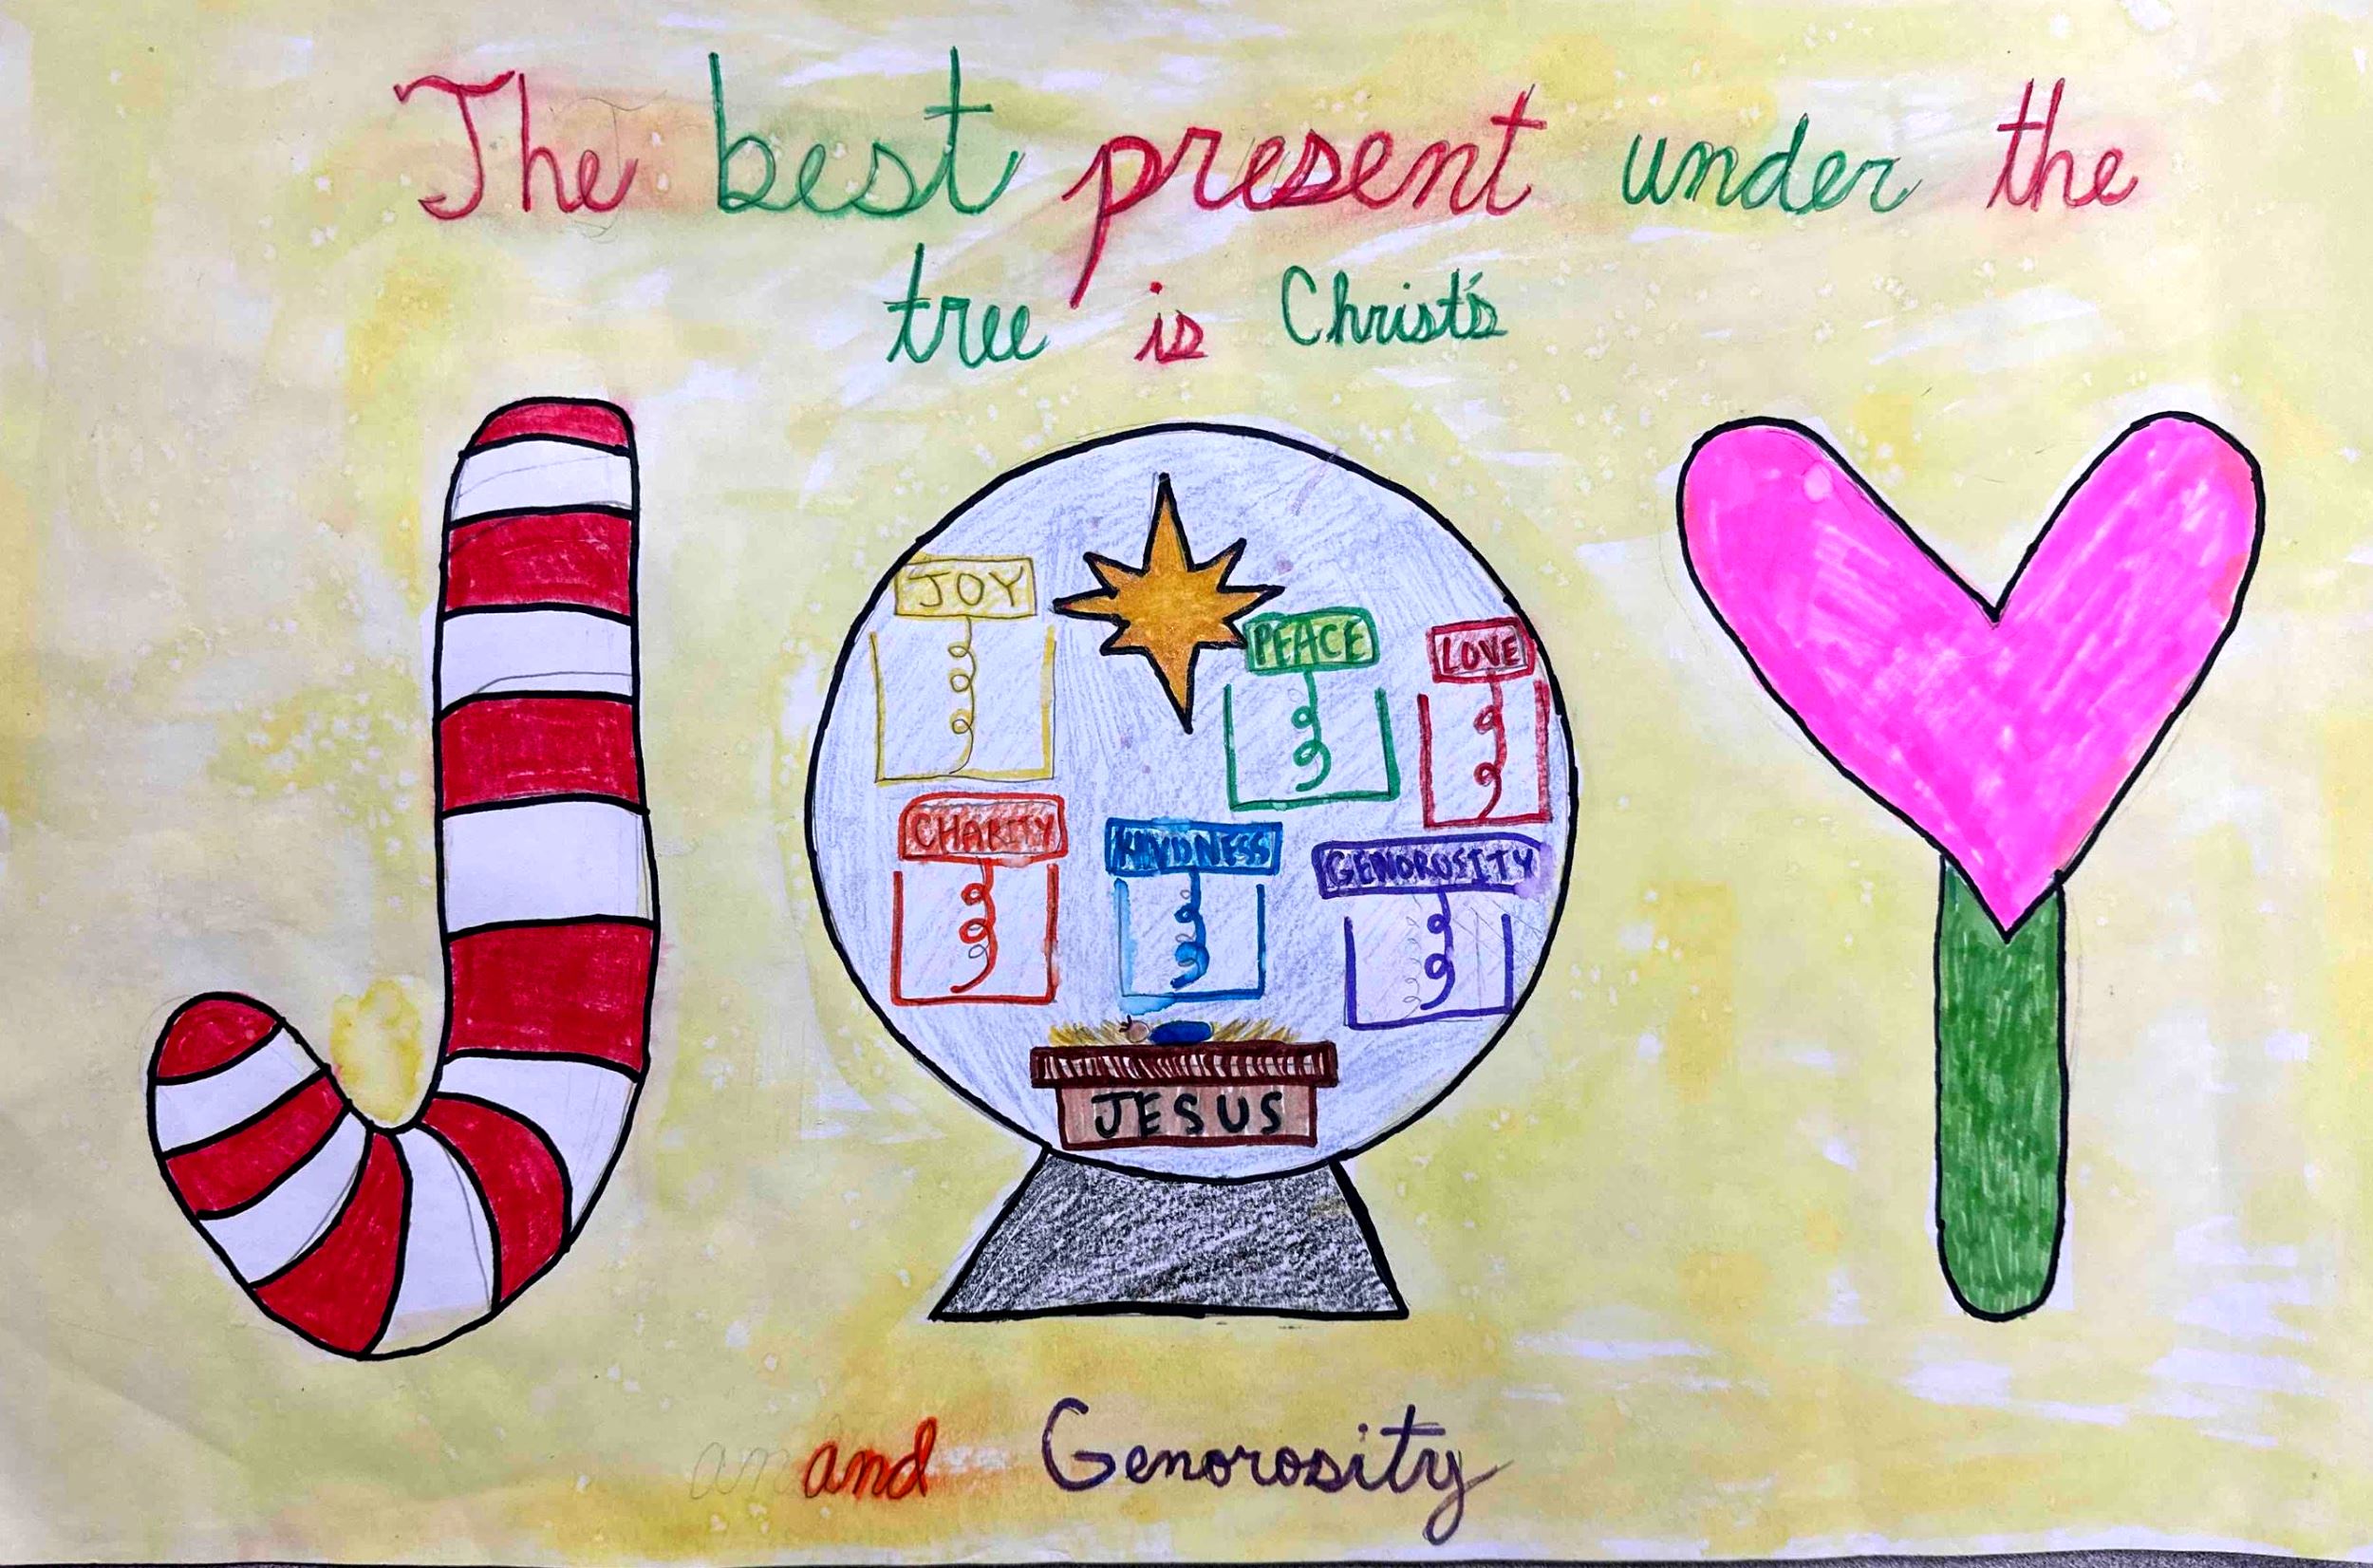 The best present under the
tree is Christ's
JOY
JOY
PEACE
LOVE
CHARITY
KINDNESS
GENOROSITY
JESUS
and Genorosity